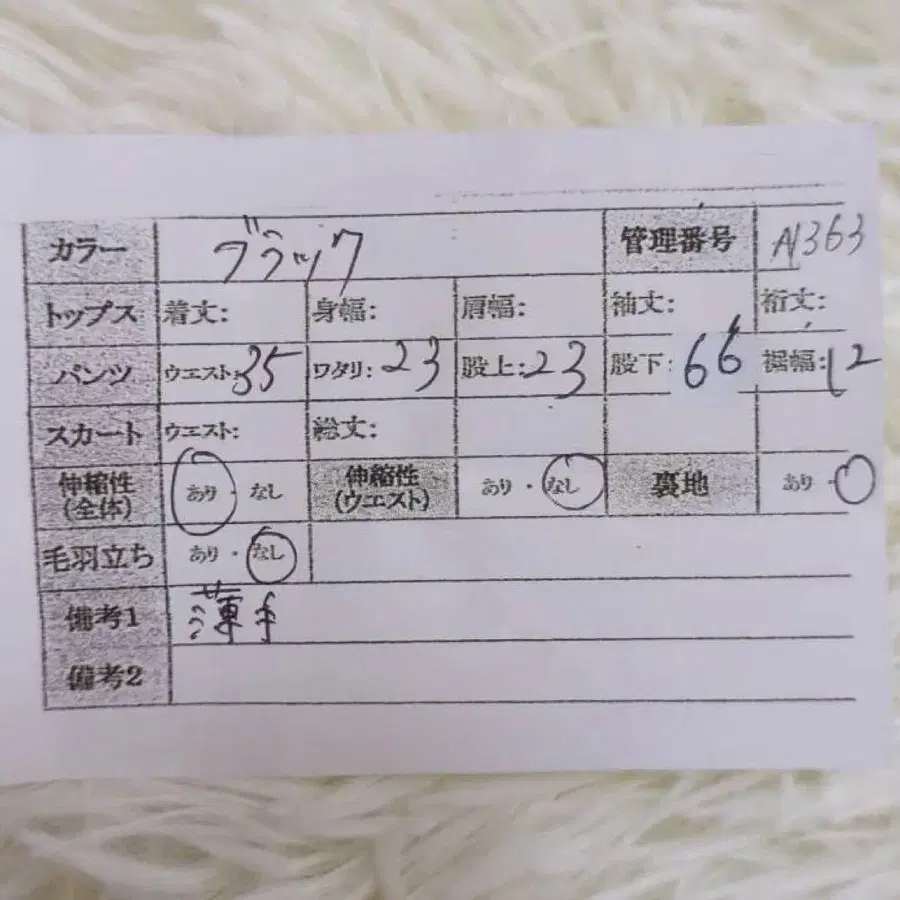 カラー ブラック 管理番号 A1363
トップス 着丈: 身幅: 肩幅: 袖丈: 裄丈:
パンツ ウエスト:35 ワタリ:23 股上:23 股下:66 裾幅:12
スカート ウエスト: 総丈:
伸縮性(全体) あり・なし 伸縮性(ウエスト) あり・なし 裏地 あり・
毛羽立ち あり・なし
備考1 薄手
備考2